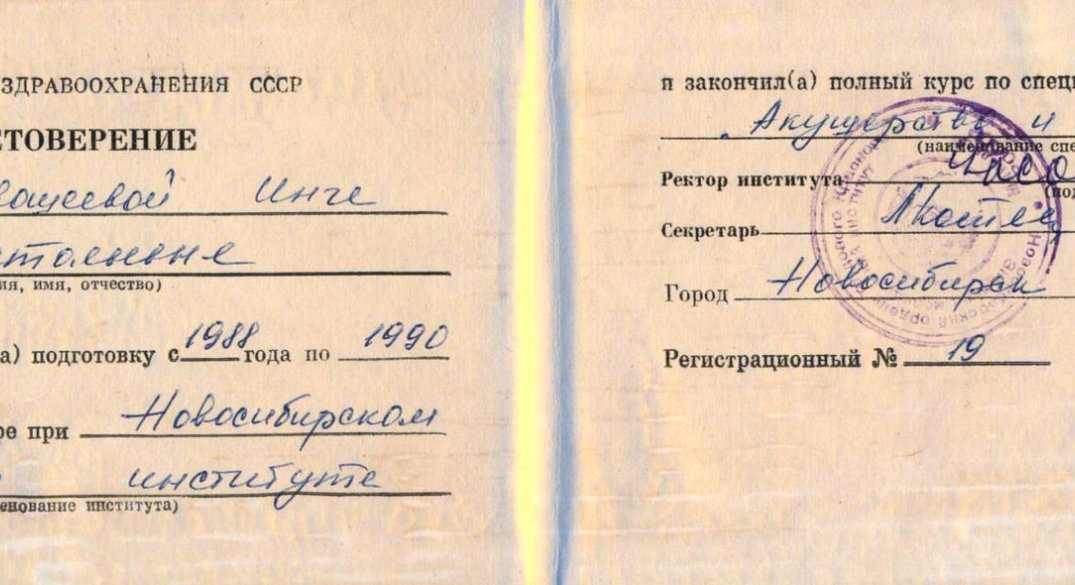 ЗДРАВООХРАНЕНИЯ СССР
СТОВЕРЕНИЕ
Инге
ия, имя, отчество)
а) подготовку с 1988 года по 1990
ре при Новосибирском
институте
енование института)
и закончил(а) полный курс по специ
Акушерство и
(наименование спе
Ректор института
(под
Секретарь
Город Новосибирск
Регистрационный № 19